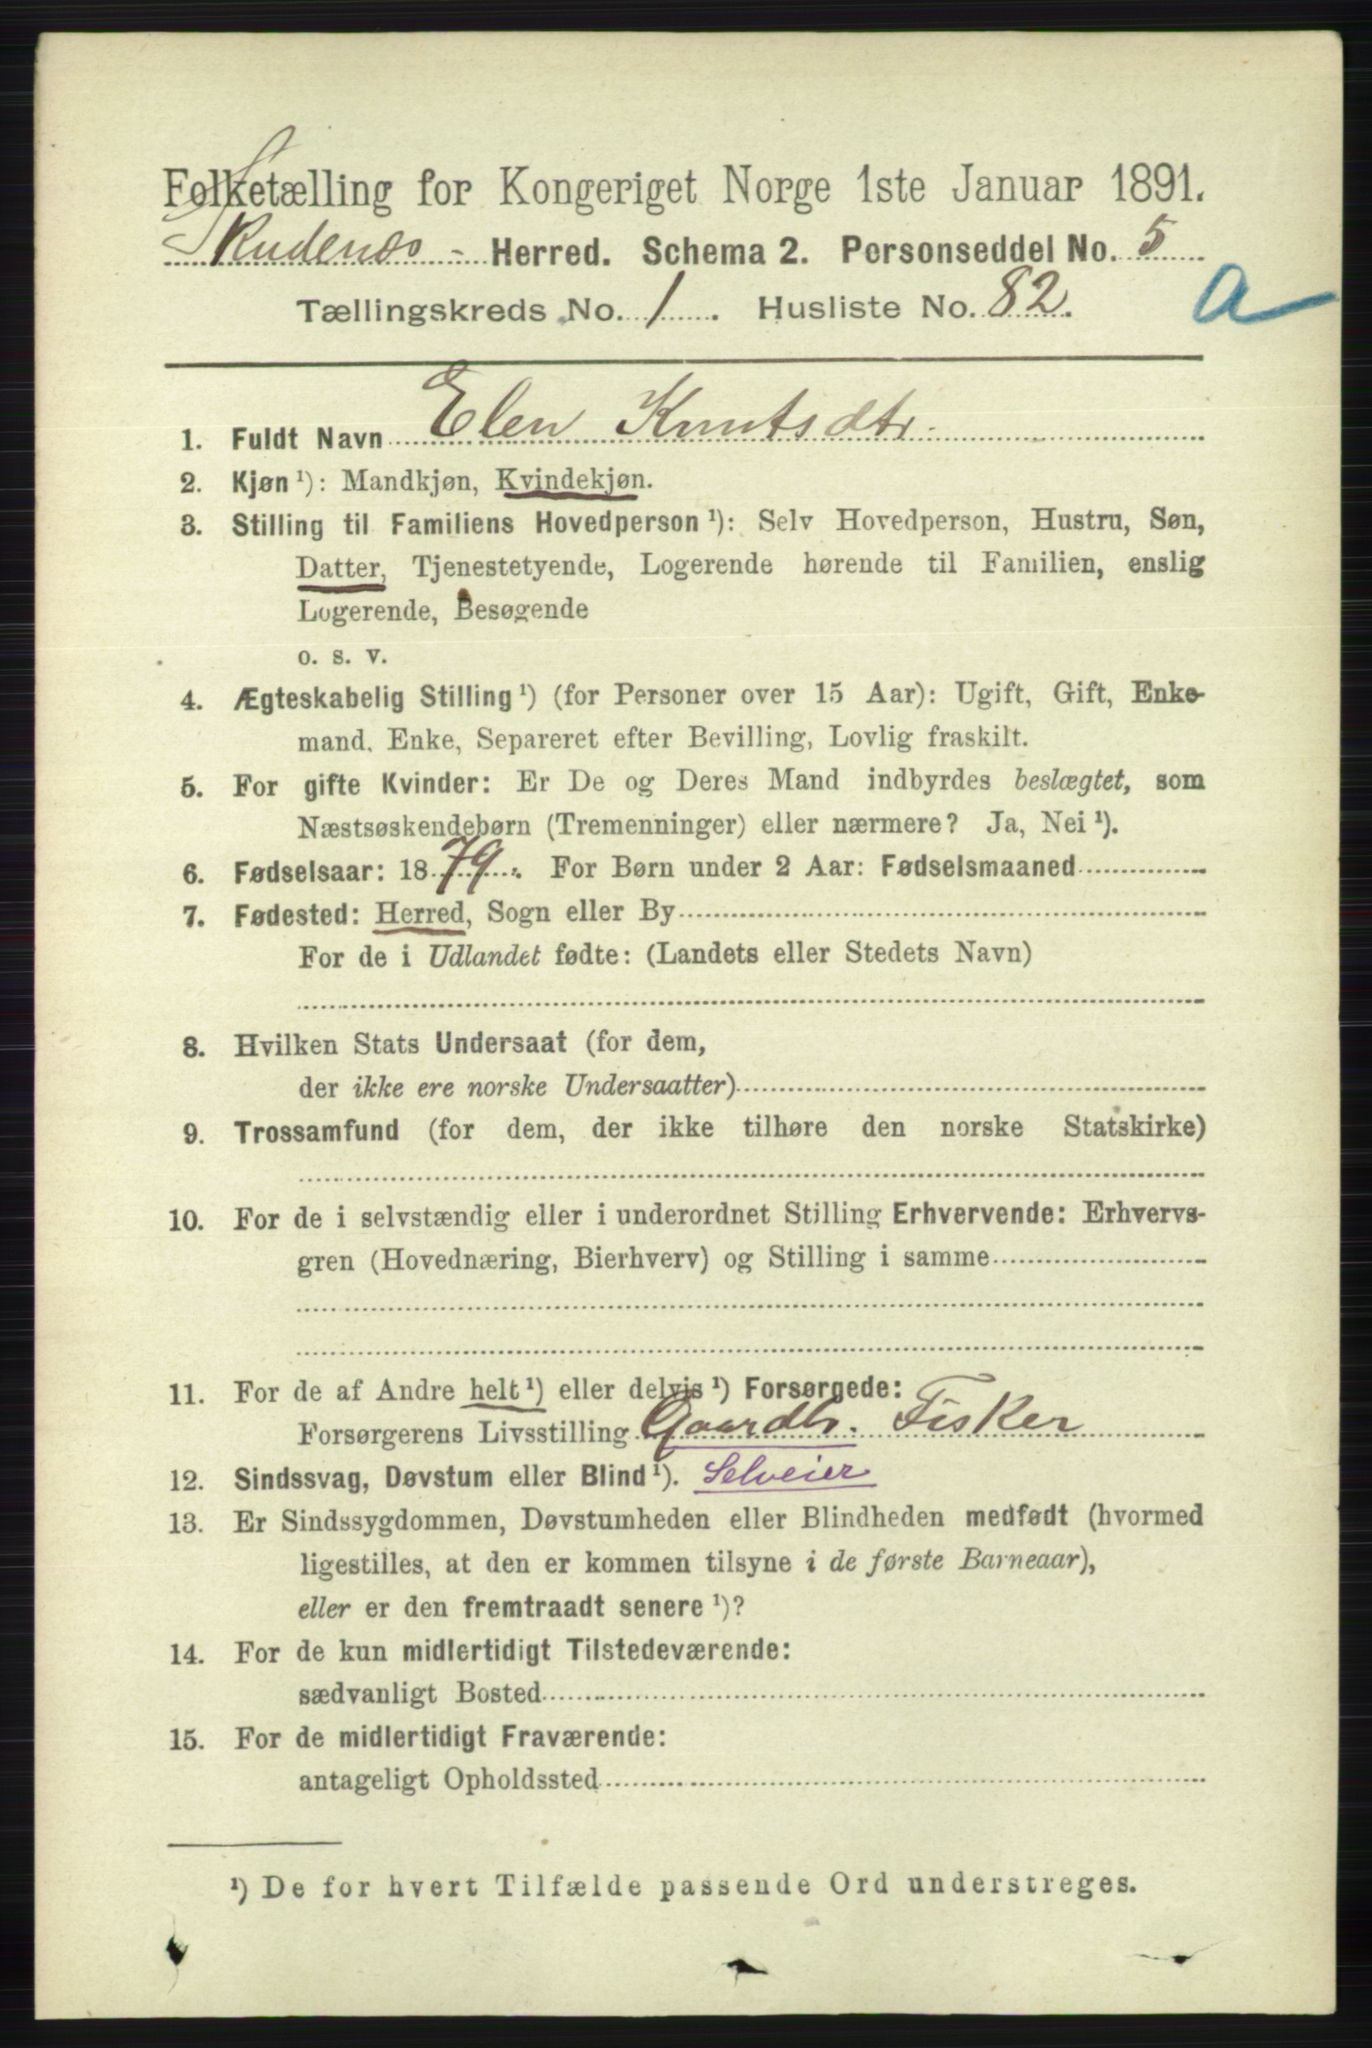 Folketælling for Kongeriget Norge 1ste Januar 1891.
Skudenæs - Herred. Schema 2. Personseddel No. 5
Tællingskreds No. 1. Husliste No. 82.
a
1. Fuldt Navn Elen Knutsdtr.
2. Kjøn ¹): Mandkjøn, Kvindekjøn.
3. Stilling til Familiens Hovedperson ¹): Selv Hovedperson, Hustru, Søn,
Datter, Tjenestetyende, Logerende hørende til Familien, enslig
Logerende, Besøgende
o. s. v.
4. Ægteskabelig Stilling ¹) (for Personer over 15 Aar): Ugift, Gift, Enke-
mand, Enke, Separeret efter Bevilling, Lovlig fraskilt.
5. For gifte Kvinder: Er De og Deres Mand indbyrdes beslægtet, som
Næstsøskendebørn (Tremenninger) eller nærmere? Ja, Nei ¹).
6. Fødselsaar: 1879. For Børn under 2 Aar: Fødselsmaaned
7. Fødested: Herred, Sogn eller By
For de i Udlandet fødte: (Landets eller Stedets Navn)
8. Hvilken Stats Undersaat (for dem,
der ikke ere norske Undersaatter)
9. Trossamfund (for dem, der ikke tilhøre den norske Statskirke)
10. For de i selvstændig eller i underordnet Stilling Erhvervende: Erhvervs-
gren (Hovednæring, Bierhverv) og Stilling i samme
11. For de af Andre helt ¹) eller delvis ¹) Forsørgede:
Forsørgerens Livsstilling Gaardbr. Fisker
12. Sindssvag, Døvstum eller Blind ¹). Selveier
13. Er Sindssygdommen, Døvstumheden eller Blindheden medfødt (hvormed
ligestilles, at den er kommen tilsyne i de første Barneaar),
eller er den fremtraadt senere ¹)?
14. For de kun midlertidigt Tilstedeværende:
sædvanligt Bosted
15. For de midlertidigt Fraværende:
antageligt Opholdssted
¹) De for hvert Tilfælde passende Ord understreges.